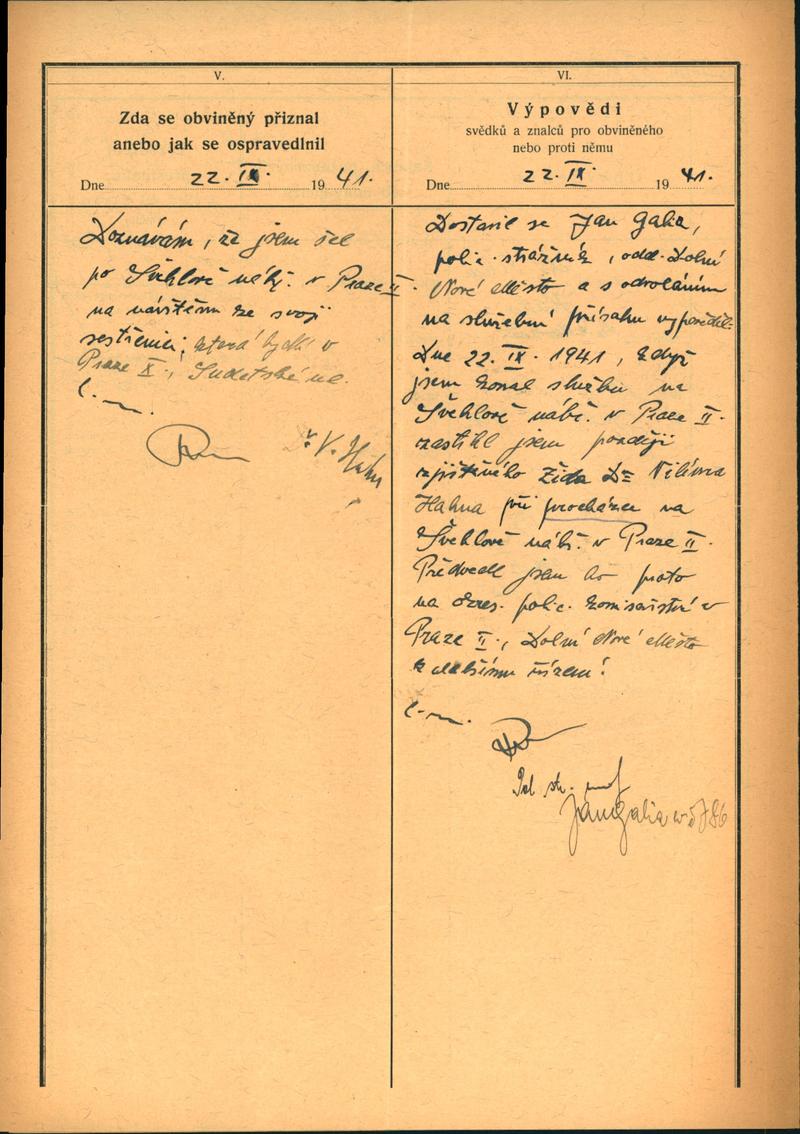 V.
Zda se obviněný přiznal
anebo jak se ospravedlnil
Dne 22. IX. 1941.
Doznávám, že jsem šel
po Švehlově nábř. v Praze II.
na návštěvu ke svojí
sestřenici, která bydlí v
Praze X., Sudetská ul.
Dr. V. Hahn
VI.
Výpovědi
svědků a znalců pro obviněného
nebo proti němu
Dne 22. IX. 1941.
Dostavil se Jan Galia,
polic. strážník, odd. Dolní
Nové Město a s odvoláním
na služební přísahu vypověděl:
Dne 22. IX. 1941, když
jsem konal službu na
Švehlově nábř. v Praze II.
zastihl jsem později
zjištěného žida Dr Viléma
Hahna při procházce na
Švehlově nábř. v Praze II.
Předvedl jsem ho proto
na okres. polic. komisařství v
Praze II., Dolní Nové Město
k dalšímu řízení.
Pol. str.
Jan Galia